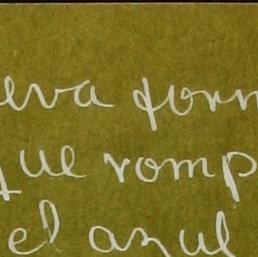 eva form
que romp
el azul